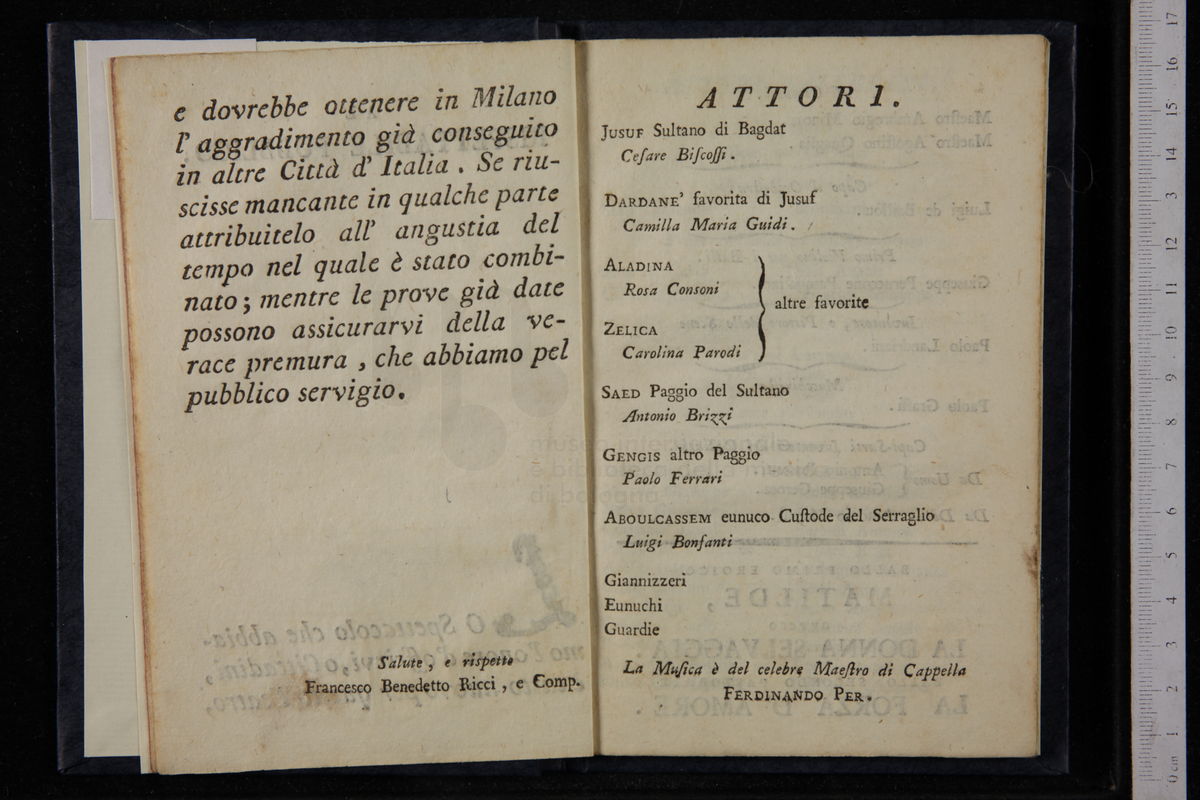 e dovrebbe ottenere in Milano
l' aggradimento già conseguito
in altre Città d' Italia . Se riu-
scisse mancante in qualche parte
attribuitelo all' angustia del
tempo nel quale è stato combi-
nato ; mentre le prove già date
possono assicurarvi della ve-
race premura , che abbiamo pel
pubblico servigio.
Salute , e rispetto
Francesco Benedetto Ricci , e Comp.
ATTORI.
JUSUF Sultano di Bagdat
Ceſare Biſcoſſi .
DARDANE' favorita di Juſuf
Camilla Maria Guidi .
ALADINA
Rosa Consoni
altre favorite
ZELICA
Carolina Parodi
SAED Paggio del Sultano
Antonio Brizzi
GENGIS altro Paggio
Paolo Ferrari
ABOULCASSEM eunuco Cuſtode del Serraglio
Luigi Bonfanti
Giannizzeri
Eunuchi
Guardie
La Muſica è del celebre Maeſtro di Cappella
FERDINANDO PER.